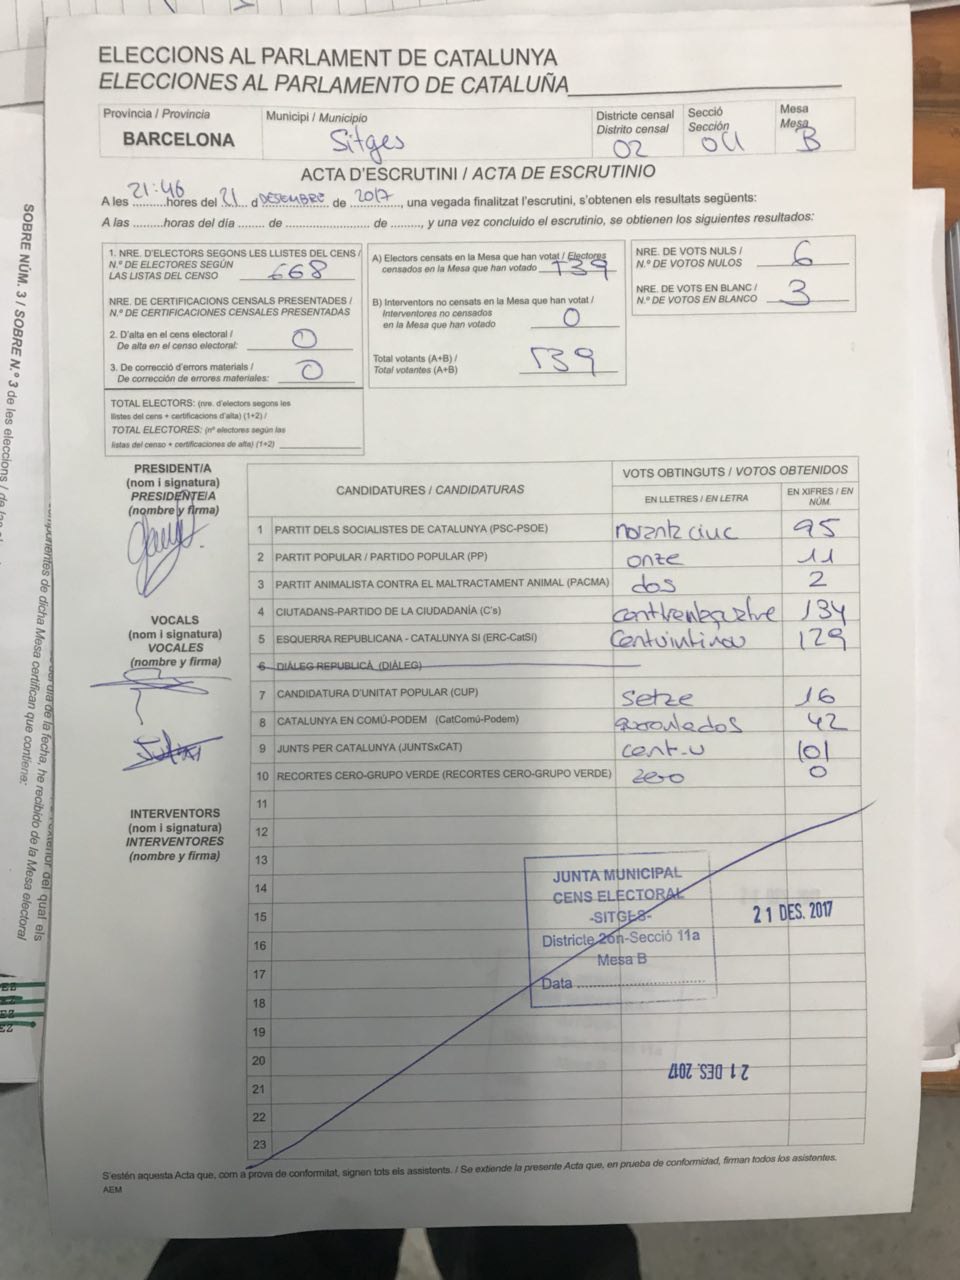 ELECCIONS AL PARLAMENT DE CATALUNYA
ELECCIONES AL PARLAMENTO DE CATALUÑA
Provincia / Provincia
BARCELONA
Municipi / Municipio
Sitges
Districte censal
Distrito censal
02
Secció
Sección
011
Mesa
Mesa
B
ACTA D'ESCRUTINI / ACTA DE ESCRUTINIO
A les 21:46 hores del 21 d DESEMBRE de 2017, una vegada finalitzat l'escrutini, s'obtenen els resultats següents:
A las .......... horas del día ....... de ..................... de ........, y una vez concluido el escrutinio, se obtienen los siguientes resultados:
1. NRE. D'ELECTORS SEGONS LES LLISTES DEL CENS /
N.º DE ELECTORES SEGÚN
LAS LISTAS DEL CENSO 668
NRE. DE CERTIFICACIONS CENSALS PRESENTADES /
N.º DE CERTIFICACIONES CENSALES PRESENTADAS
2. D'alta en el cens electoral /
De alta en el censo electoral: 0
3. De correcció d'errors materials /
De corrección de errores materiales: 0
TOTAL ELECTORS: (nre. d'electors segons les
llistes del cens + certificacions d'alta) (1+2) /
TOTAL ELECTORES: (nº electores según las
listas del censo + certificaciones de alta) (1+2)
A) Electors censats en la Mesa que han votat / Electores
censados en la Mesa que han votado 539
B) Interventors no censats en la Mesa que han votat /
Interventores no censados
en la Mesa que han votado 0
Total votants (A+B) /
Total votantes (A+B) 539
NRE. DE VOTS NULS /
N.º DE VOTOS NULOS 6
NRE. DE VOTS EN BLANC /
N.º DE VOTOS EN BLANCO 3
PRESIDENT/A
(nom i signatura)
PRESIDENTE/A
(nombre y firma)
VOCALS
(nom i signatura)
VOCALES
(nombre y firma)
INTERVENTORS
(nom i signatura)
INTERVENTORES
(nombre y firma)
CANDIDATURES / CANDIDATURAS
VOTS OBTINGUTS / VOTOS OBTENIDOS
EN LLETRES / EN LETRA
EN XIFRES / EN NÚM.
1 PARTIT DELS SOCIALISTES DE CATALUNYA (PSC-PSOE) norantz cinc 95
2 PARTIT POPULAR / PARTIDO POPULAR (PP) onze 11
3 PARTIT ANIMALISTA CONTRA EL MALTRACTAMENT ANIMAL (PACMA) dos 2
4 CIUTADANS-PARTIDO DE LA CIUDADANÍA (C's) 134
5 ESQUERRA REPUBLICANA - CATALUNYA SI (ERC-CatSí) Centvintinou 129
6 DIÀLEG REPUBLICÀ (DIÀLEG)
7 CANDIDATURA D'UNITAT POPULAR (CUP) setze 16
8 CATALUNYA EN COMÚ-PODEM (CatComú-Podem) 42
9 JUNTS PER CATALUNYA (JUNTSxCAT) cent-u 101
10 RECORTES CERO-GRUPO VERDE (RECORTES CERO-GRUPO VERDE) zero 0
11
12
13
14
15
16
17
18
19
20
21
22
23
JUNTA MUNICIPAL
CENS ELECTORAL
-SITGES-
Districte 2on-Secció 11a
Mesa B
Data
21 DES. 2017
21 DES. 2017
S'estén aquesta Acta que, com a prova de conformitat, signen tots els assistents. / Se extiende la presente Acta que, en prueba de conformidad, firman todos los asistentes.
AEM
SOBRE NÚM. 3 / SOBRE N.º 3 de les eleccions / de las
componentes de dicha Mesa certifican que contiene:
de la fecha, he recibido de la Mesa electoral
del qual els